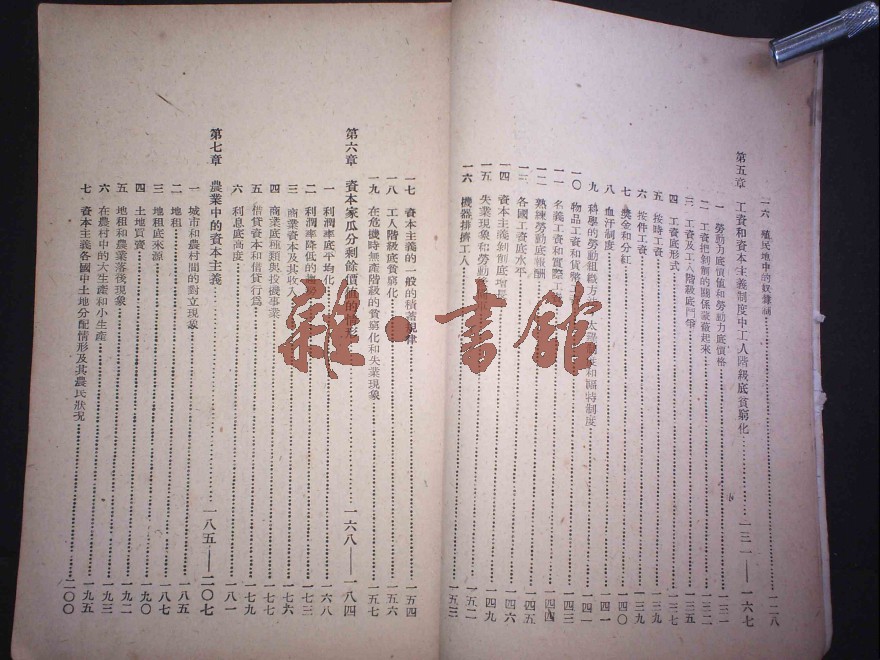 一六 殖民地中的奴隸制……一二八
第五章 工資和資本主義制度中工人階級底貧窮化……一三一——一六七
一 勞動力底價值和勞動力底價格……一三一
二 工資把剝削的關係遮蓋起來……一三二
三 工資及工人階級底鬥爭……一三五
四 工資底形式……一三七
五 按時工資……一三九
六 按件工資……一三九
七 獎金和分紅……一四〇
八 血汗制度……一四一
九 科學的勞動組織方 太 和福特制度……一四一
一〇 物品工資和貨幣工……一四三
一一 名義工資和實際工……一四四
一二 熟練勞動底報酬……一四四
一三 各國工資底水平……一四五
一四 資本主義剝削底增……一四六
一五 失業現象和勞動……一四九
一六 機器排擠工人……一五二
一五三
一七 資本主義的一般的積蓄規律……一五四
一八 工人階級底貧窮化……一五六
一九 在危機時無產階級的貧窮化和失業現象……一五七
第六章 資本家瓜分剩餘價值的情形……一六八——一八四
一 利潤率底平均化……一六八
二 利潤率降低的……一七三
三 商業資本及其收入……一七六
四 商業底種類與投機事業……一七七
五 借貸資本和借貸行爲……一七九
六 利息底高度……一八一
第七章 農業中的資本主義……一八五——二〇七
一 城市和農村間的對立現象……一八五
二 地租……一八七
三 地租底來源……一九〇
四 土地買賣……一九二
五 地租和農業落後現象……一九三
六 在農村中的大生產和小生產……一九五
七 資本主義各國中土地分配情形及其農民狀况……二〇〇
雜·書館